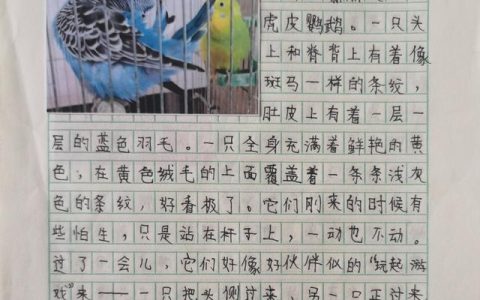 虎皮鹦鹉。一只头
上和脊背上有着像
斑马一样的条纹，
肚皮上有着一层一
层的蓝色羽毛。一只全身充满着鲜艳的黄
色，在黄色绒毛的上面覆盖着一条条浅灰
色的条纹，好看极了。它们刚来的时候有
些怕生，只是站在杆子上，一动也不动。
过了一会儿，它们好像好伙伴似的“玩起游
戏”来——一只把头侧过来，另一只正过来